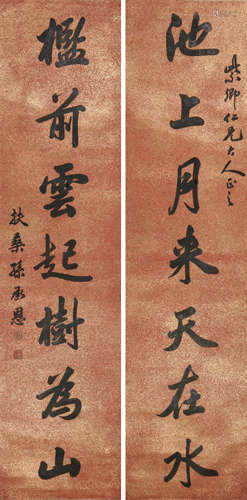 池上月来天在水
紫卿仁兄大人正之
檻前雲起樹為山
扶桑孫承恩